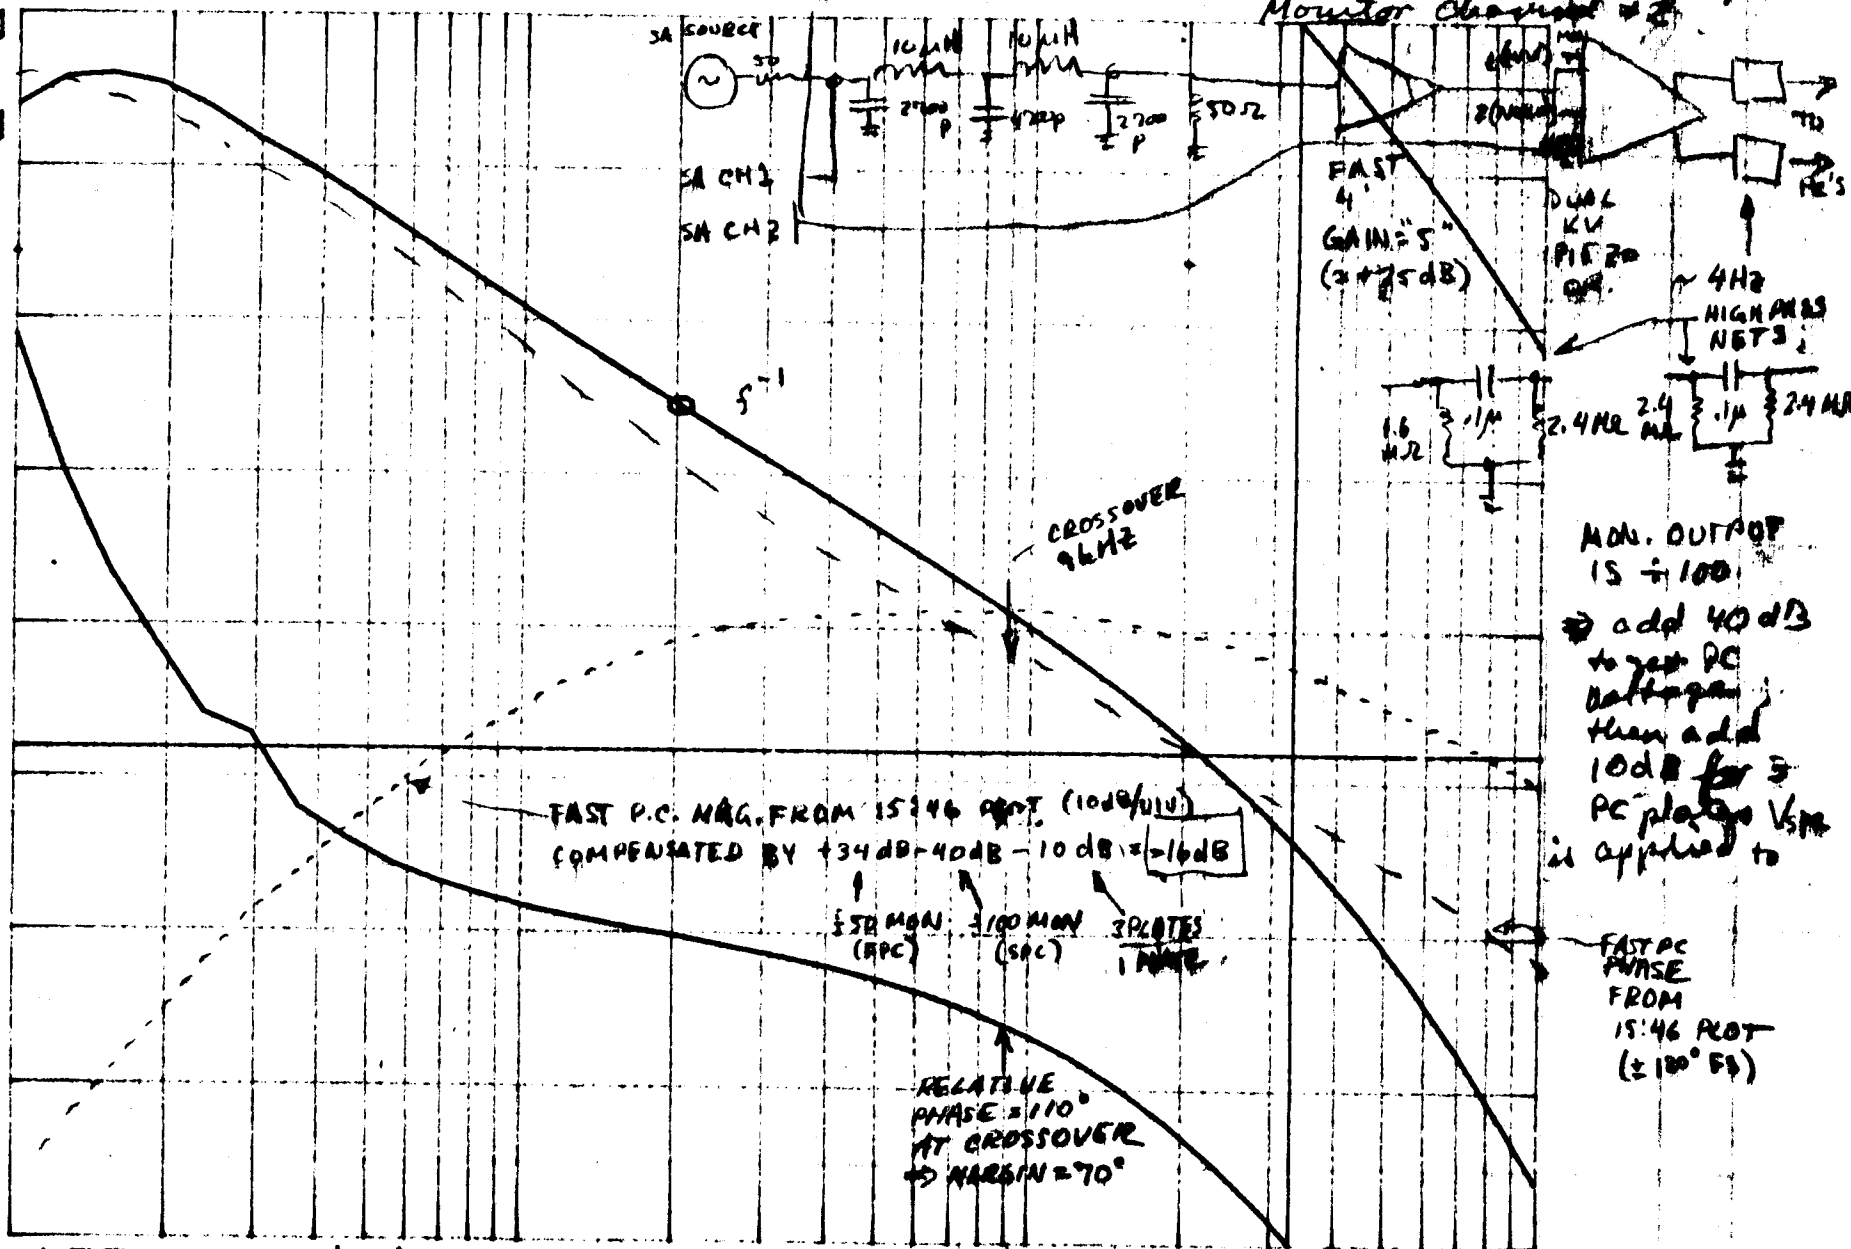 Monitor Channel # 2
SA SOURCE
50
10 µH
10 µH
2700
P
4700p
2700
P
50Ω
SA CH1
SA CH2
FAST
GAIN = "5"
DUAL
KV
PIEZO
TO
PZ'S
~ 4Hz
HIGH PASS
NETS
f -1
1.6
MΩ
.1µ
2.4 MΩ
2.4
MΩ
.1µ
2.4 MΩ
CROSSOVER
9kHZ
MON. OUTPUT
IS ÷ 100
⇒ add 40 dB
to get PC
voltage;
then add
10dB for 3
PC plates
is applied to
FAST P.C. MAG. FROM 15:46 PLOT. (10dB/DIV)
COMPENSATED BY +34 dB-40dB - 10 dB = -16dB
÷50 MON
(FPC)
÷100 MON
(SPC)
3 PLATES
1 PLATE
FAST PC
PHASE
FROM
15:46 PLOT
(± 180° FS)
RELATIVE
PHASE = 110°
AT CROSSOVER
⇒ MARGIN = 70°